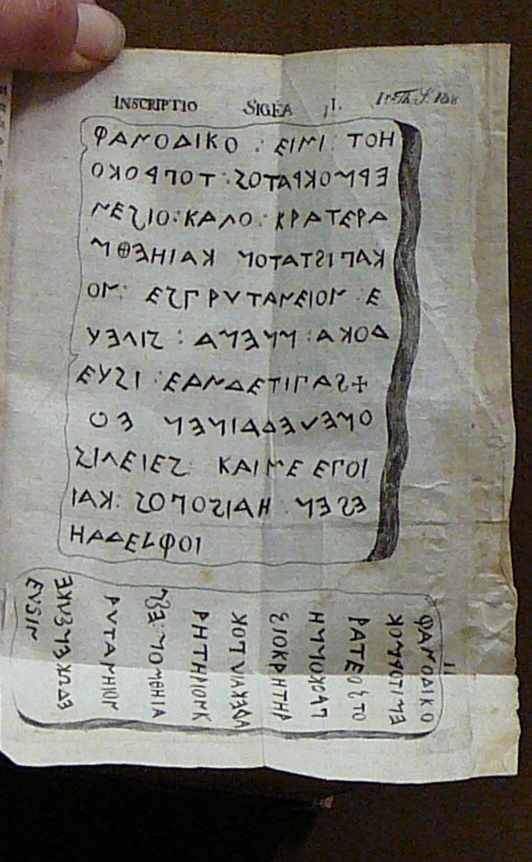 INSCRIPTIO SIGEA
ΦΑΝΟΔΙΚΟ : ΕΙΜΙ : ΤΟΗ
ΕΡΜΟΚΡΑΤΟΣ : ΤΟΠΡΟΚΟ
ΝΕΣΙΟ : ΚΑΓΟ : ΚΡΑΤΕΡΑ
ΚΑΠΙΣΤΑΤΟΝ ΚΑΙΗΕΘΜ
ΟΝ : ΕΣΠΡΥΤΑΝΕΙΟΝ : Ε
ΔΟΚΑ : ΜΝΕΜΑ : ΣΙΓΕΥ
ΕΥΣΙ : ΕΑΝΔΕΤΙΠΑΣ+
ΟΜΕΛΕΔΑΙΝΕΝ ΕΟ
ΣΙΓΕΙΕΣ ΚΑΙΜΕ ΕΠΟΙ
ΕΣΕΝ : ΗΑΙΣΟΠΟΣ : ΚΑΙ
ΗΑΔΕΛΦΟΙ
ΦΑΝΟΔΙΚΟ
ΕΜΙΤΟΡΜΟΚ
ΡΑΤΕΟΣΤΟ
ΠΡΟΚΟΝΝΗ
ΣΙΟΚΡΗΤΗΡ
ΑΔΕΚΑΙΥΠΟΚ
ΡΗΤΗΡΙΟΝΚ
ΑΙΗΘΜΟΝ : ΕΣΠ
ΡΥΤΑΝΗΙΟΝ
ΕΔΩΚΕΝΣΥΚΕ
ΕΥΣΙΝ